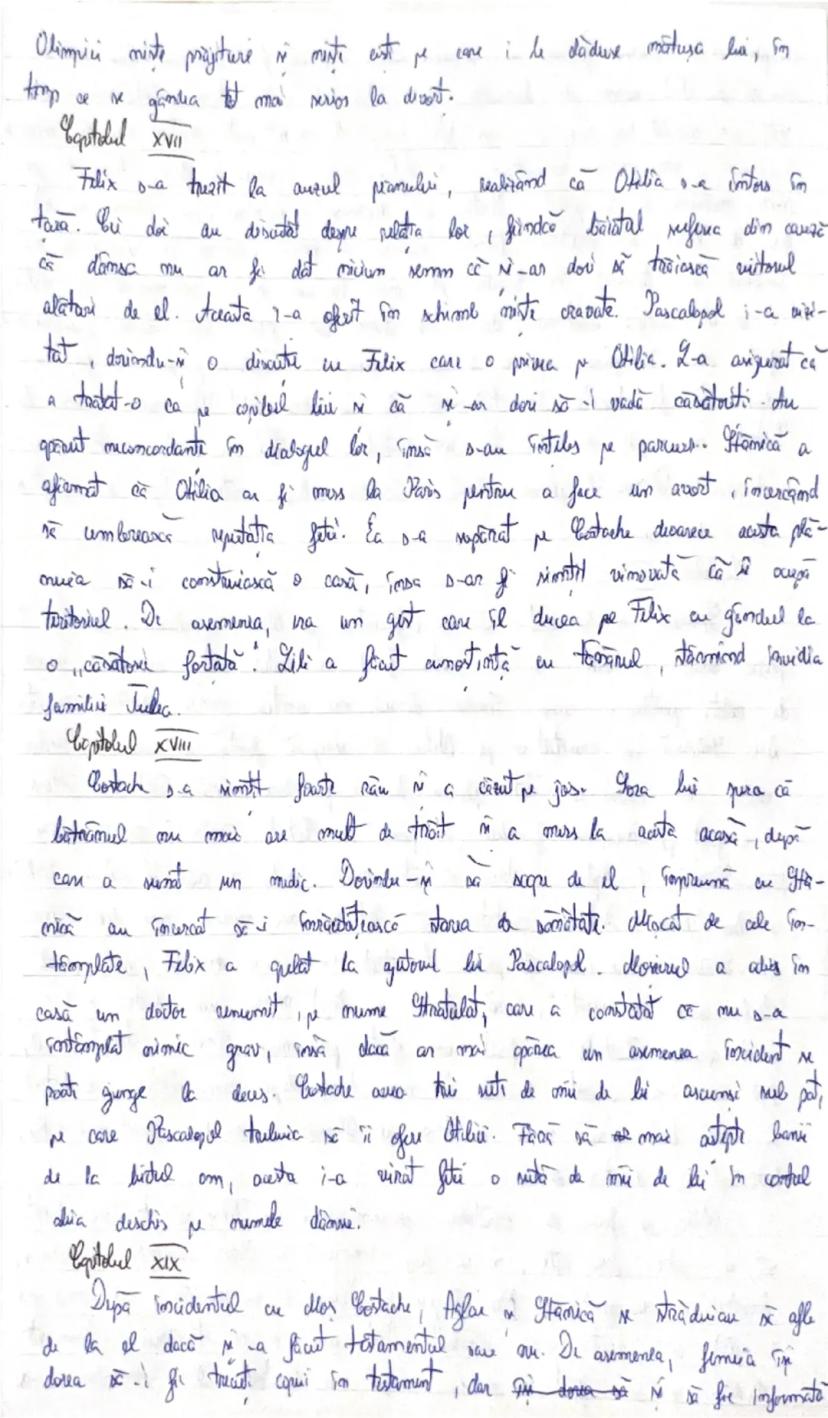 Olimpiei niște prăjituri și niște cești pe care i le dăduse mătușa lui, în
timp ce se gândea tot mai serios la divorț.
Capitolul XVII
Felix s-a trezit la auzul pianului, realizând că Otilia s-a întors în
țară. Cei doi au discutat despre relația lor, fiindcă băiatul suferea din cauză
că dânsa nu ar fi dat niciun semn că și-ar dori să trăiască viitorul
alături de el. Aceasta i-a oferit în schimb niște cravate. Pascalopol i-a vizi-
tat, dorindu-și o discuție cu Felix care o privea pe Otilia. L-a asigurat că
a tratat-o ca pe copilul lui și că și-ar dori să-i vadă căsătoriți. Au
apărut neconcordanțe în dialogul lor, însă s-au înțeles pe parcurs. Stănică a
afirmat că Otilia ar fi mers la Paris pentru a face un avort, încercând
să umbrească reputația fetei. Ea s-a supărat pe Costache deoarece acesta plă-
nuia să-i construiască o casă, însa s-ar fi simțit vinovată că îi ocupă
teritoriul. De asemenea, era un gest care îl ducea pe Felix cu gândul la
o „căsătorie forțată”. Lili a făcut cunoștință cu tânărul, stârnind invidia
familiei Tulea.
Capitolul XVIII
Costach s-a simțit foarte rău și a căzut pe jos. Sora lui spera că
bătrânul nu mai are mult de trăit și a mers la acesta acasă, după
care a sunat un medic. Dorindu-și să scape de el, împreună cu Stă-
nică au încercat să-i înrăutățească starea de sănătate. Șocat de cele în-
tâmplate, Felix a apelat la ajutorul lui Pascalopol. Moșierul a adus în
casă un doctor renumit, pe nume Stratulat, care a constatat că nu s-a
întâmplat nimic grav, însă dacă ar mai apărea un asemenea incident se
poate ajunge la deces. Costache avea trei sute de mii de lei ascunși sub pat,
pe care Pascalopol trebuia să îi ofere Otiliei. Fără să mai aștepte banii
de la bietul om, acesta i-a virat fetei o sută de mii de lei în contul
abia deschis pe numele dânsei.
Capitolul XIX
După incidentul cu Moș Costache, Aglae și Stănică se străduiau să afle
de la el dacă și-a făcut testamentul sau nu. De asemenea, femeia își
dorea să-i fie trecuți copiii în testament, dar și să fie informată